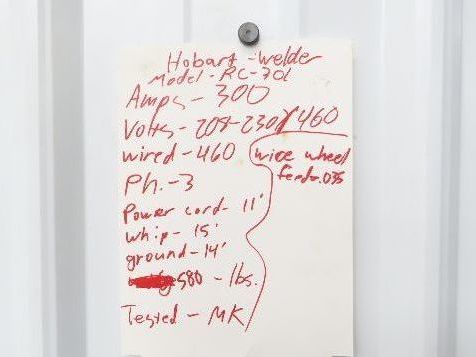 Hobart - Welder
Model - RC-301
Amps - 300
Volts - 208-230/460
wired - 460
Ph. - 3
Power cord - 11'
whip - 15'
ground - 14'
580 - lbs.
Tested - MK
wire wheel
feed - .035